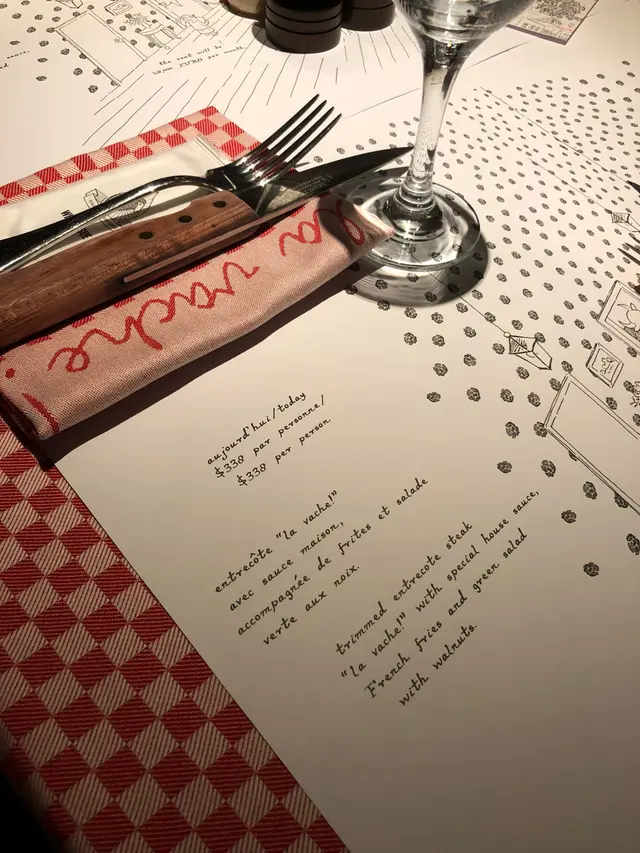 the rent will be
20,00 EURO per month
la vache!
aujourd'hui/today
$338 par personne/
$338 per person
entrecôte "la vache!"
avec sauce maison,
accompagnée de frites et salade
verte aux noix.
trimmed entrecote steak
"la vache!" with special house sauce,
French fries and green salad
with walnuts.